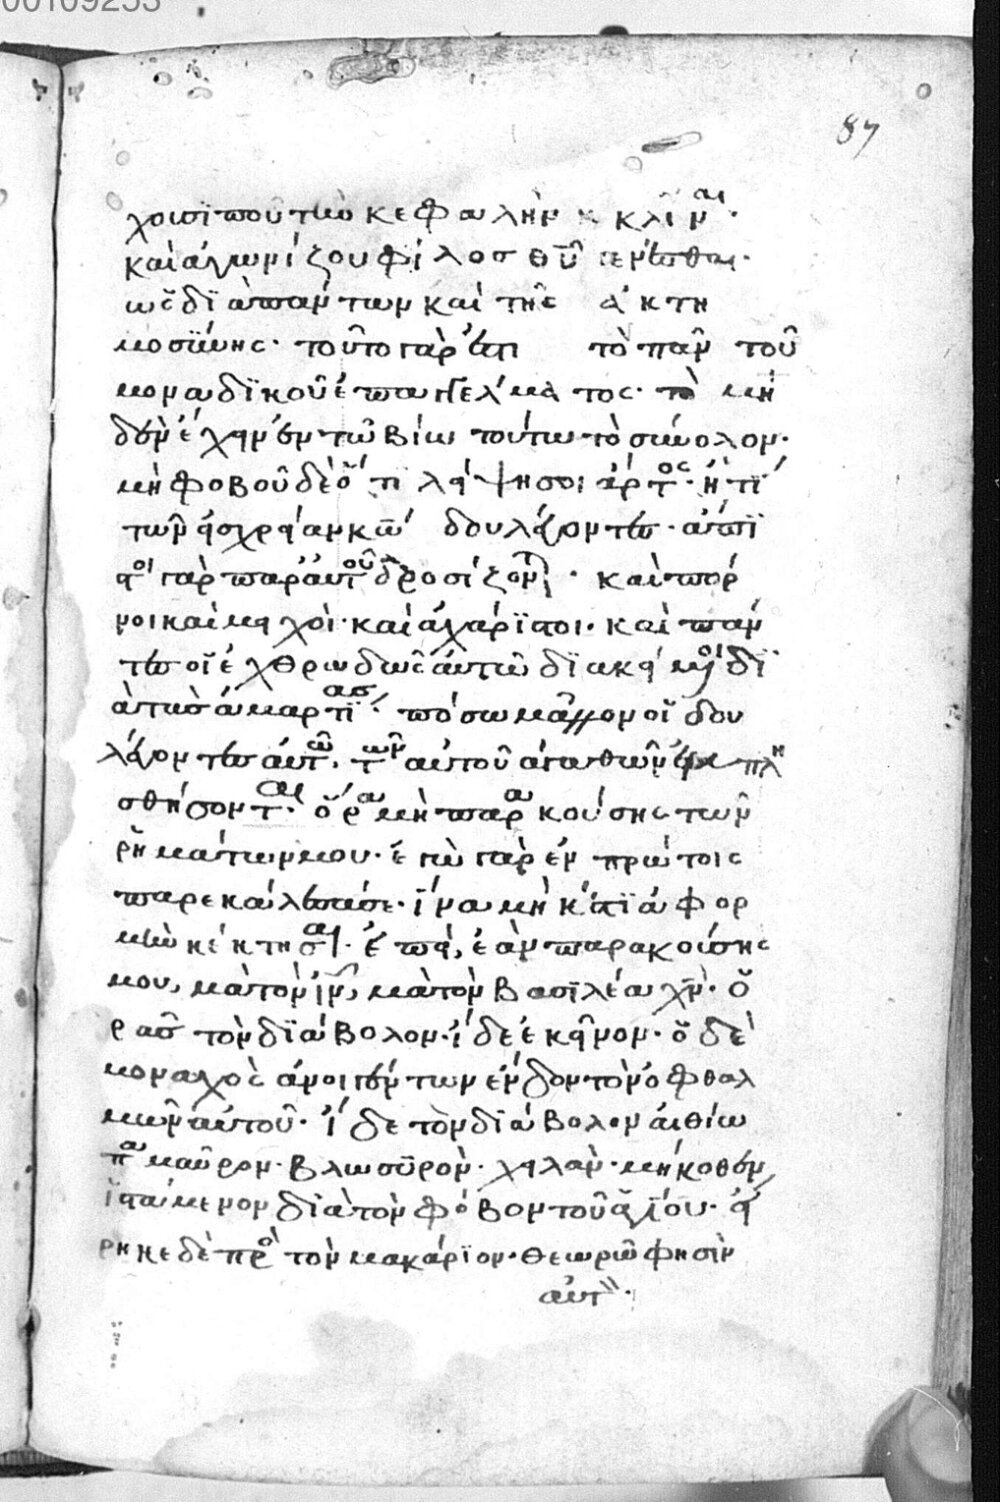 00109253
87
χοισ ποῦ τὴν κεφαλὴν κλῖναι·
καὶ ἀγωνίζου φίλος θῦ γενέσθαι·
ὡς διὰ πάντων καὶ τῆς ἀκτη
μοσύνης· τοῦτο γάρ ἐστι τὸ πᾶν τοῦ
μοναδικοῦ ἐπαγγέλματος· τὸ μη
δὲν ἔχειν ἐν τῶ βίω τούτω τὸ σύνολον·
μὴ φοβοῦ δὲ ὅτι λείψη σοι ἄρτος· ἤ τι
τῶν εἰς χρείαν κῶ δουλεύοντες· ἄπι
στοι γὰρ παρ αὐτοῦ δροσίζονται· καὶ πόρ
νοι καὶ μοιχοὶ· καὶ ἀχάριστοι· καὶ πάν
τες οἱ ἐχθρωδῶς αὐτῶ διακείμενοι δι
ὰ τὰς ἁμαρτίας· πόσω μᾶλλον οἱ δου
λεύοντες αὐτῶ, τῶν αὐτοῦ ἀγαθῶν ἐμπλη
σθήσονται· ὅρα μὴ παρακούσης τῶν
ῥημάτων μου· ἐγὼ γὰρ ἐν πρώτοις
παρεκάλεσά σε· ἵνα μὴ κἀτι ἀφορ
μὴν ἐκτήσαι· ἔπει, ἐὰν παρακούσης
μου, μὰ τὸν ἰν, μὰ τὸν βασιλέα χν· ὁ
ρᾶς τὸν διάβολον· ἴδε ἐκεῖνον· ὁ δὲ
μοναχὸς ἀνοιγέντων ἔνδον τὸν ὀφθαλ
μῶν αὐτοῦ· ἴδε τὸν διάβολον αἰθίω
πα μαῦρον· βλωσυρὸν· χειλὰν· μήκοθεν
ἱστάμενον διὰ τὸν φόβον τοῦ ἁγίου· εἴ
ρηκε δὲ πρὸς τὸν μακάριον· θεωρῶ φησὶν
αὐτὸν·